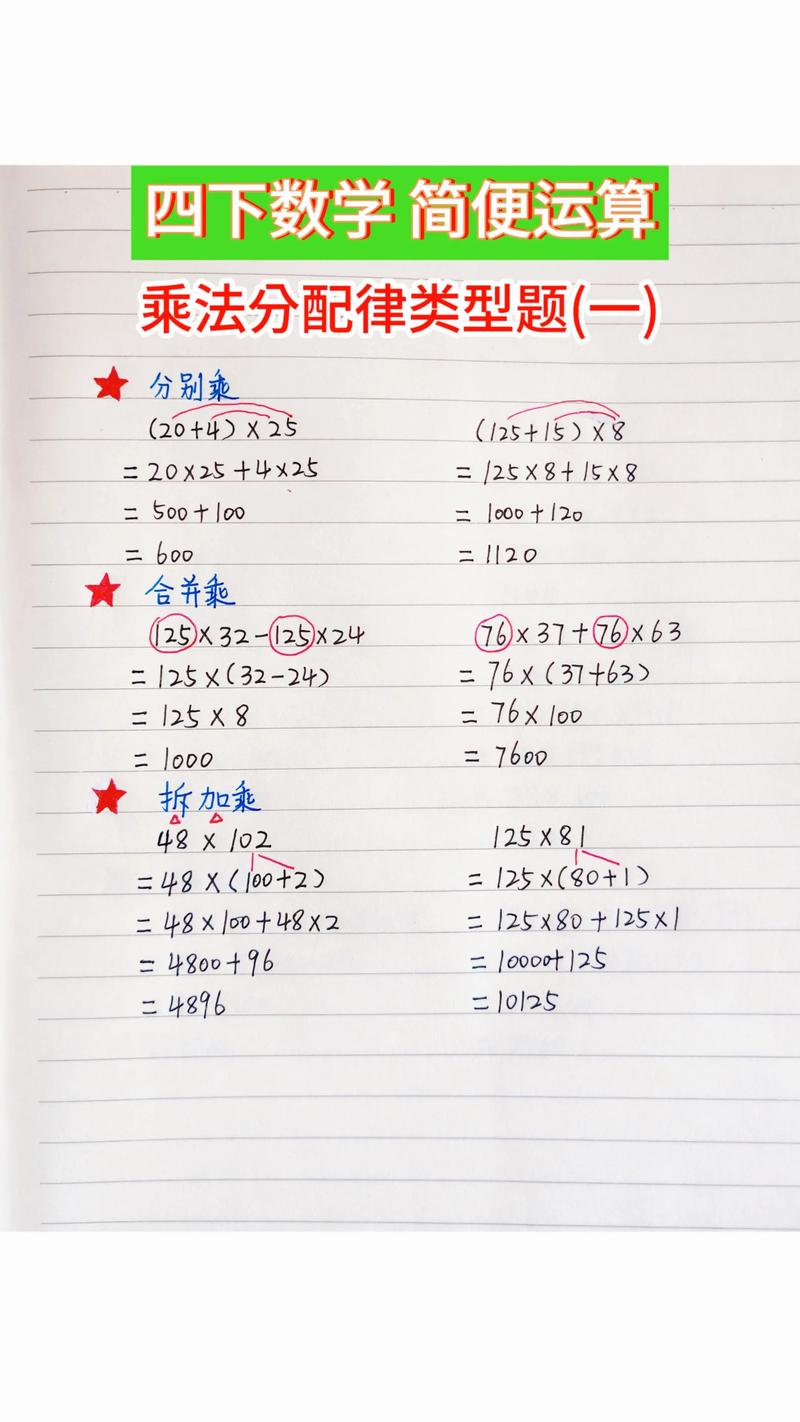 四下数学 简便运算
乘法分配律类型题(一)
分别乘
(20+4)×25
=20×25+4×25
=500+100
=600
(125+15)×8
=125×8+15×8
=1000+120
=1120
合并乘
125×32-125×24
=125×(32-24)
=125×8
=1000
76×37+76×63
=76×(37+63)
=76×100
=7600
拆加乘
48×102
=48×(100+2)
=48×100+48×2
=4800+96
=4896
125×81
=125×(80+1)
=125×80+125×1
=10000+125
=10125